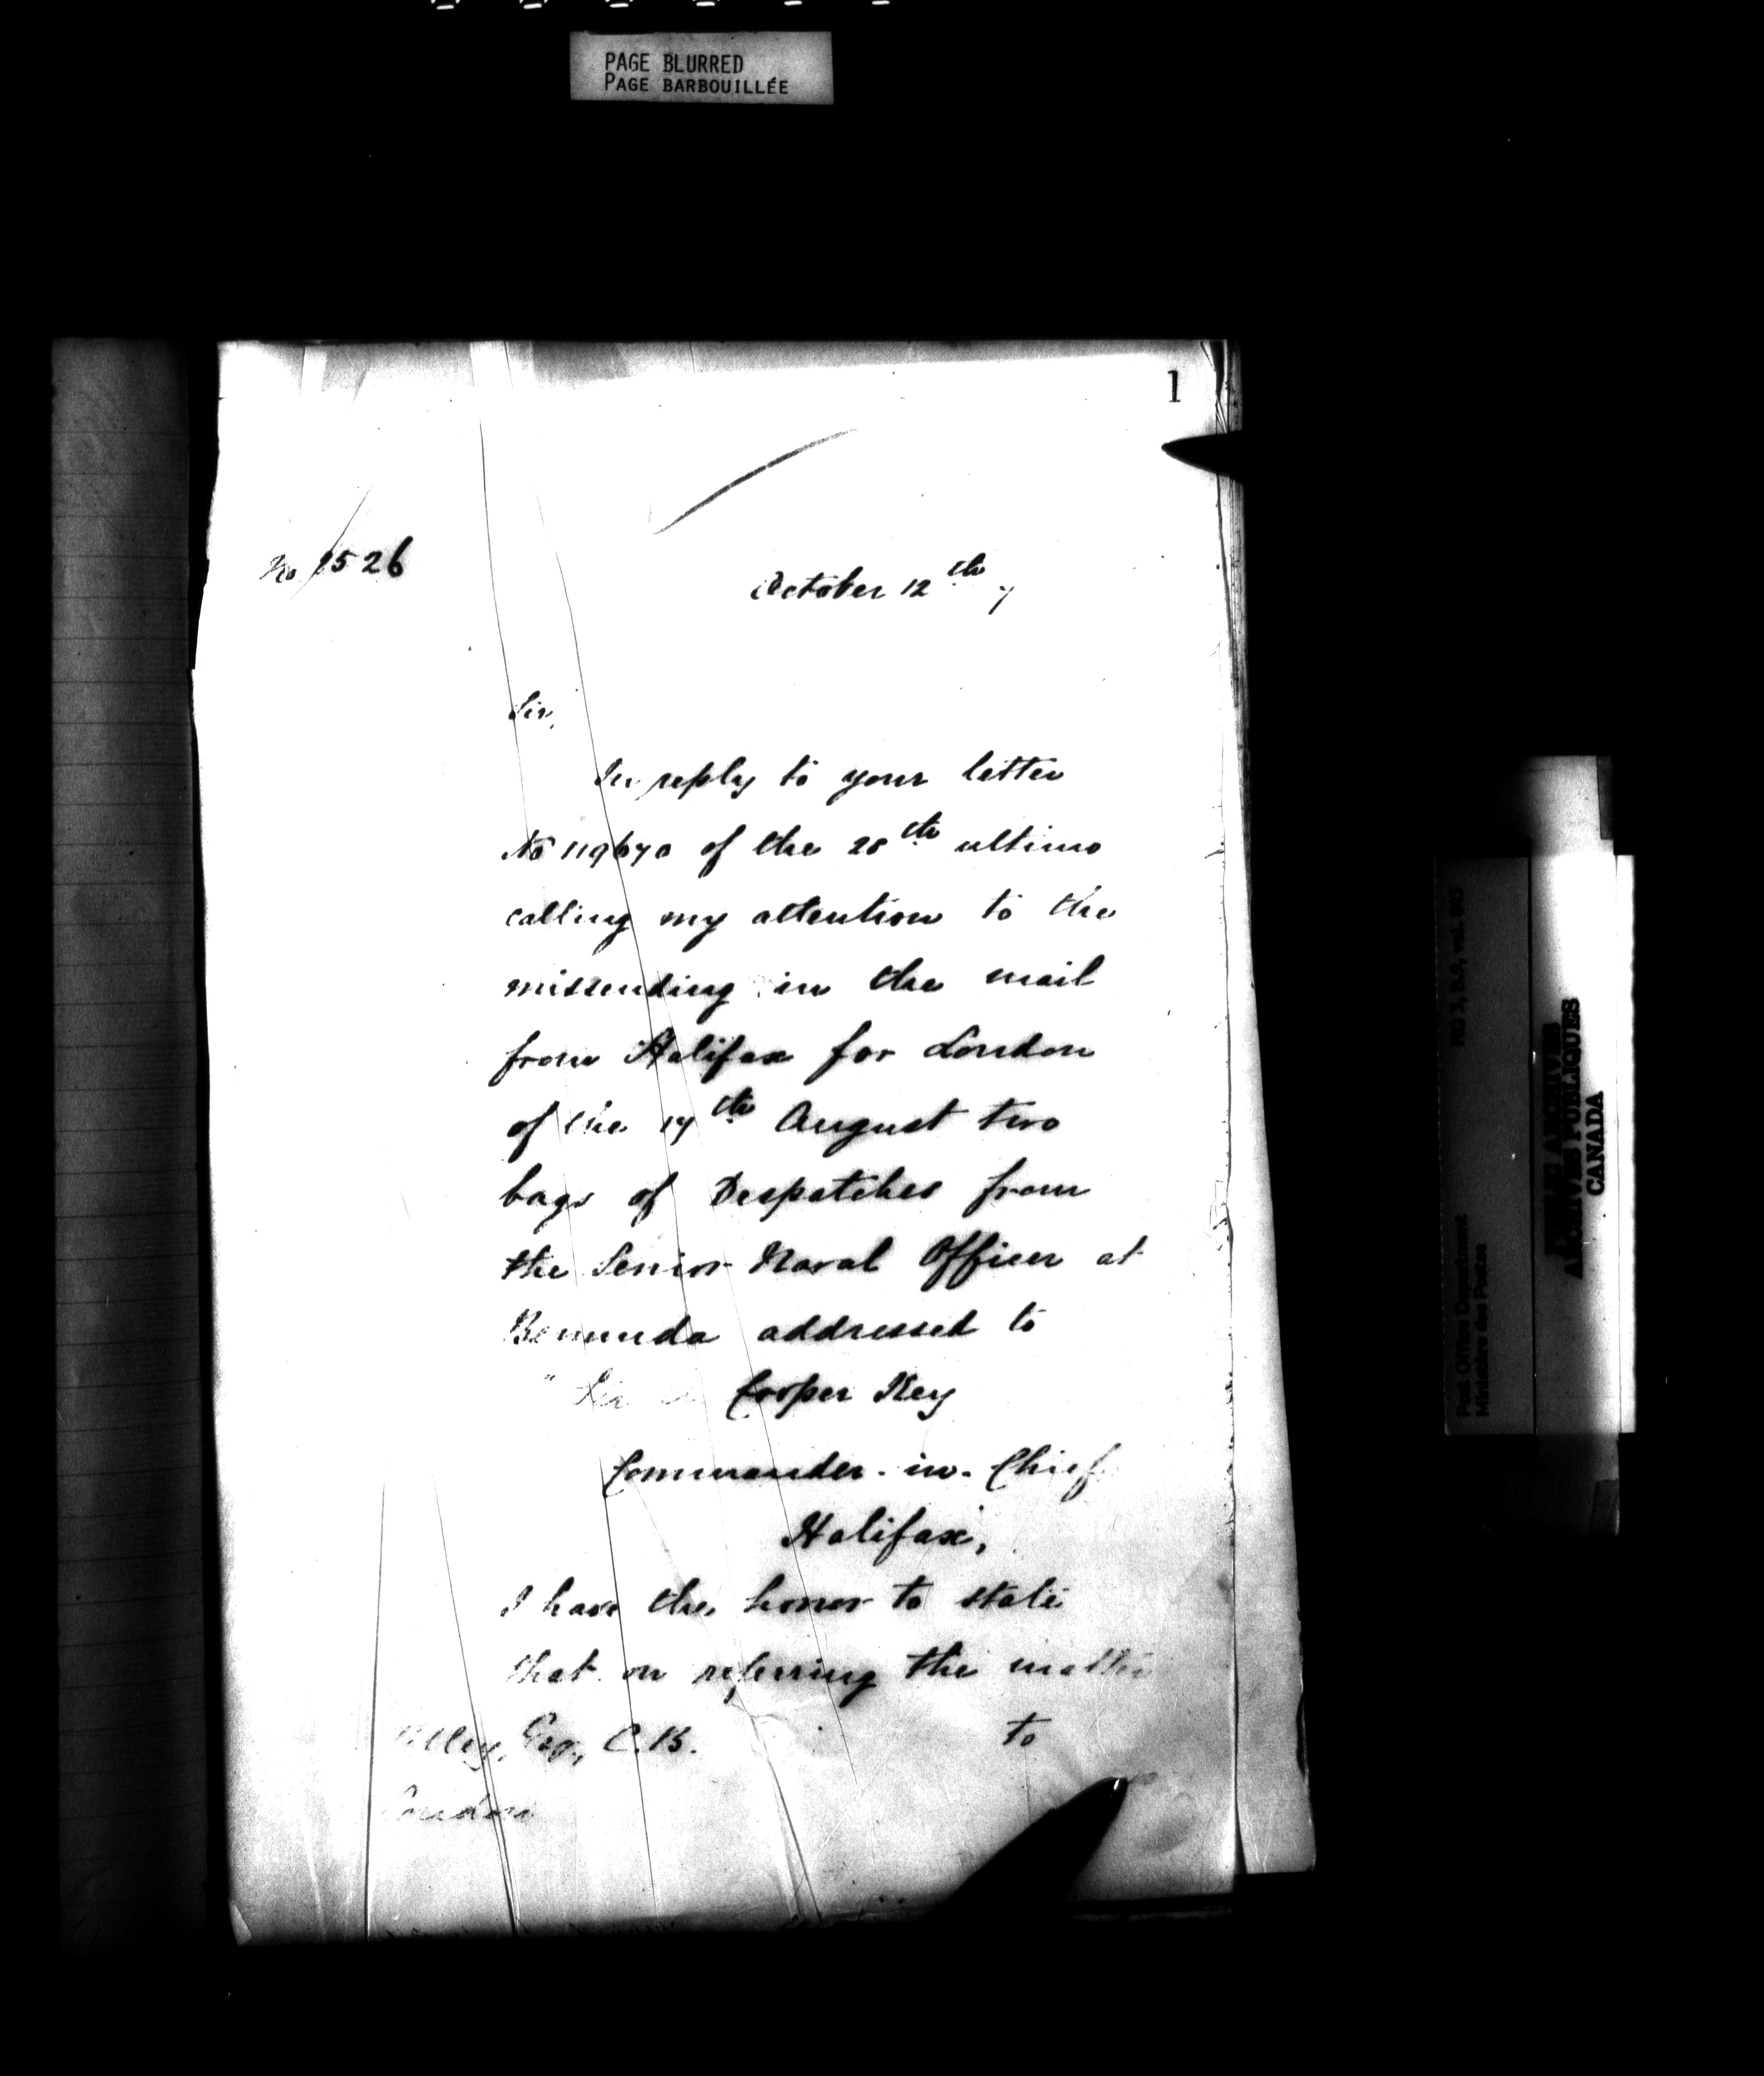 PAGE BLURRED
PAGE BARBOUILLÉE
1
No 9526
October 12th 7
Sir,
In reply to your letter
No 119670 of the 28th ultimo
calling my attention to the
missending in the mail
from Halifax for London
of the 14th August two
bags of Despatches from
the Senior Naval Officer at
Bermuda addressed to
" Sir Cooper Key
Commander-in-Chief
Halifax,
I have the honor to state
that on referring the matter
to
Tilley, Esq., C.B.
London
RG 3, B.9, vol.
Post Office Department
Ministère des Postes
PUBLIC ARCHIVES
ARCHIVES PUBLIQUES
CANADA